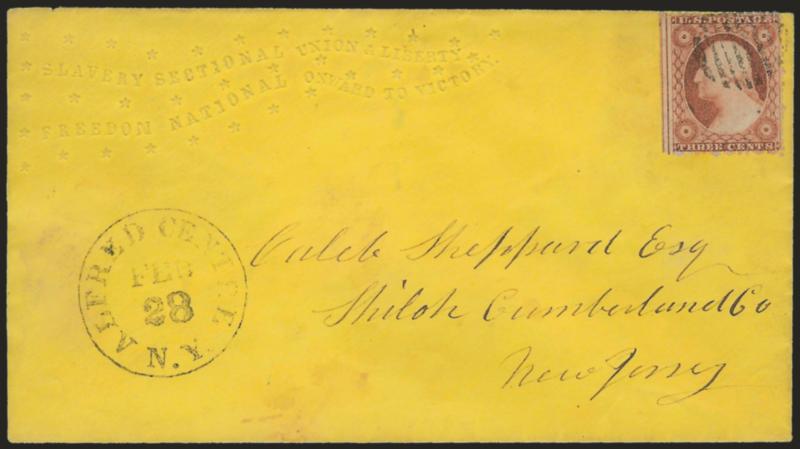 SLAVERY SECTIONAL UNION & LIBERTY
FREEDOM NATIONAL ONWARD TO VICTORY.
U.S. POSTAGE
THREE CENTS
ALFRED CENTRE
FEB
28
N.Y.
Caleb Sheppard Esq
Shiloh Cumberland Co
New Jersey